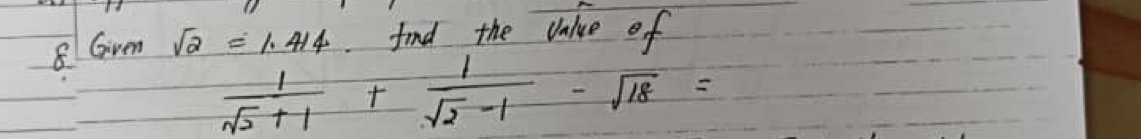 8. Given √2 = 1.414. find the value of
1/(√2 + 1) + 1/(√2 - 1) - √18 =